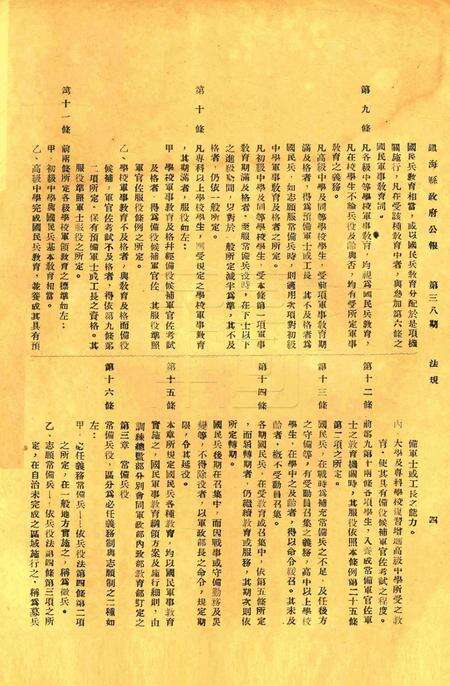 鎮海縣政府公報　第三八期　法規　四
國民兵教育相當，或以國民兵教育分配於是項機
關施行，凡在受該種教育中者，與參加第六條之
國民軍事教育同。
第九條　凡各級中等學校軍事教育，均視為國民兵教育，
凡在校學生不論兵役及齡與否，均有受所定軍事
教育之義務。
凡高級中學及同等學校學生，受前項軍事教育期
滿及格者，得為預備軍士或工長，其不及格者為
國民兵，如志願服常備兵時，則適用次項對初級
中學軍事教育及格者之所定。
凡初級中學及同等學校學生，受本條第一項軍事
教育期滿及格者，至應服常備兵役時，在下士以下
之進級期間，只對於一般所定減半為準，其不及
格者，仍依一般所定。
第十條　凡專科以上學校學生，應受規定之學校軍事教育
，其期滿者，服役如左：
甲、學校軍事教育及格幷經備役候補軍官佐考試
及格者，得為備役候補軍官佐，其服役準照
軍官佐服役條例之所定。
乙、學校軍事教育不及格者，與教育及格而備役
候補軍官佐考試不及格者，得依第九條第
二項所定，保有預備軍士或工長之資格，其
服役準照軍士服役之所定。
第十一條　前兩條所定各級學校軍事教育之標準如左：
甲、初級中學與國民兵基本教育相當。
乙、高級中學完成國民兵教育，兼養成其具有預
備軍士或工長之能力。
丙、大學及專科學校複習增高高級中學所受之教
育，使其具有備役候補軍官佐考試之程度。
第十二條　前第九第十兩條各項學生，入養成常備軍官佐軍
士之教育機關時，其服役依照本條例第二十五條
第二項之所定。
第十三條　國民兵在戰時為補充常備兵之不足，及任後方
之守備等，有受動員召集之義務，高中以上學校
學生，在學中之及齡者，得以命令緩召。其未及
齡者，概不受動員召集。
第十四條　各期國民兵，在受教育或召集中，依第五條所定
，而屆轉期者，仍繼續教育或服務，其期次則依
所定轉期。
國民兵後期在召集中，而因戰事或守備勤務及災
變等，不得除役者，以軍政部長之命令，規定期
限，令其延役。
第十五條　本章所規定國民兵各種教育，均以國民軍事教育
實施之，國民軍事教育綱領方案及施行細則，由
訓練總監部分別會同軍政部內政部教育部訂定之
第三章　常備兵役
第十六條　常備兵役，區分為必任義務制與志願制之二種如
左：
甲、必任義務常備兵——依兵役法第四條第二項
之所定，在一般地方實施之，稱為徵兵。
乙、志願常備兵——依兵役法第四條第三項之所
定，在自治未完成之區域施行之，稱為募兵